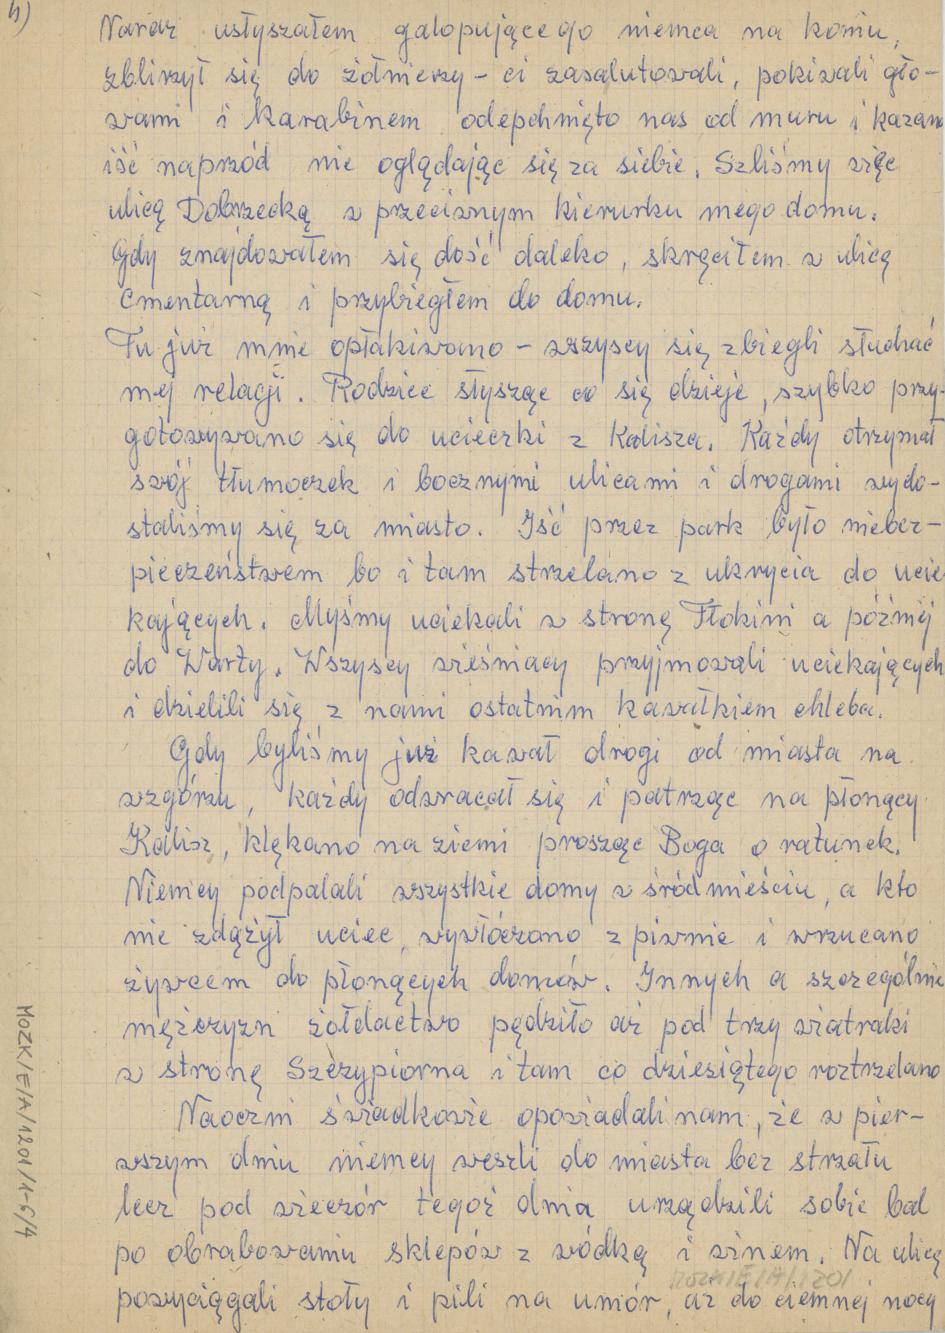 4)
Naraz usłyszałem galopującego niemca na koniu,
zbliżył się do żołnierzy – ci zasalutowali, pokiwali gło-
wami i karabinem odepchnięto nas od muru i kazano
iść naprzód nie oglądając się za siebie. Szliśmy więc
ulicą Dobrzecką w przeciwnym kierunku mego domu.
Gdy znajdowałem się dość daleko, skręciłem w ulicę
Cmentarną i przybiegłem do domu.
Tu już mnie opłakiwano – wszyscy się zbiegli słuchać
mej relacji. Rodzice słysząc co się dzieje, szybko przy-
gotowywano się do ucieczki z Kalisza. Każdy otrzymał
swój tłumoczek i bocznymi ulicami i drogami wydo-
staliśmy się za miasto. Iść przez park było niebez-
pieczeństwem bo i tam strzelano z ukrycia do ucie
kających. Myśmy uciekali w stronę Tłokini a później
do Warty. Wszyscy wieśniacy przyjmowali uciekających
i dzielili się z nami ostatnim kawałkiem chleba.
Gdy byliśmy już kawał drogi od miasta na
wzgórzu, każdy odwracał się i patrząc na płonący
Kalisz, klękano na ziemi prosząc Boga o ratunek.
Niemcy podpalali wszystkie domy w śródmieściu, a kto
nie zdążył uciec, wywłóczono z piwnic i wrzucano
żywcem do płonących domów. Innych a szczególnie
mężczyzn żołdactwo pędziło aż pod trzy wiatraki
w stronę Szczypiorna i tam co dziesiątego roztrzelano
Naoczni świadkowie opowiadali nam, że w pier-
wszym dniu niemcy weszli do miasta bez strzału
lecz pod wieczór tegoż dnia urządzili sobie bal
po obrabowaniu sklepów z wódką i winem. Na ulicę
powyciągali stoły i pili na umór, aż do ciemnej nocy
MOZK/E/A/1201/1-6/4
MOZK/E/A/1201